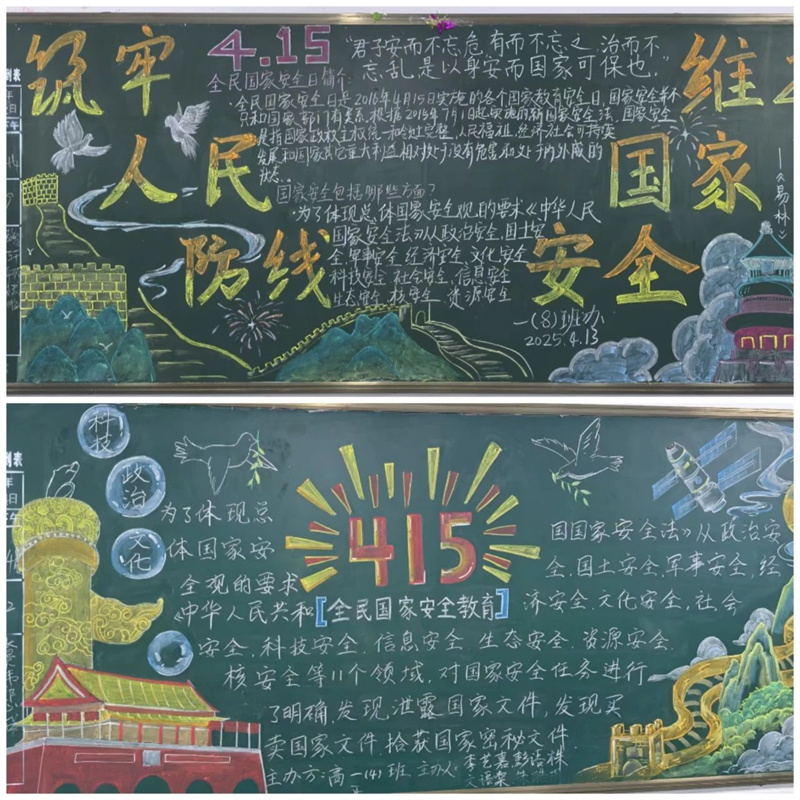 筑牢
人民
防线
4.15
全民国家安全日简介:
"君子安而不忘危,有而不忘之,治而不
忘乱,是以身安而国家可保也."
——《易林》
·全民国家安全日是2016年4月15日实施的各个国家教育安全日,国家安全并不
只和国家部门有关系.根据2015年7月1日起实施的新国家安全法,国家安全
是指国家政权主权统一和领土完整,人民福祉,经济社会可持续
发展和国家其它重大利益相对处于没有危害和处于内外威的
状态.
国家安全包括哪些方面?
·为了体现总体国家安全观的要求《中华人民
国家安全法》从政治安全,国土安
全,军事安全,经济安全,文化安全
科技安全,社会安全,信息安全
生态安全,核安全,资源安全
维
国家
安全
一(8)班办
2025.4.13
科技
政治
文化
为了体现总
体国家安
全观的要求
《中华人民共和
415
[全民国家安全教育]
国国家安全法》从政治安
全,国土安全,军事安全,经
济安全,文化安全,社会
安全,科技安全,信息安全,生态安全,资源安全,
核安全等11个领域,对国家安全任务进行
了明确,发现泄露国家文件,发现买
卖国家文件,拾获国家密秘文件.
主办方:高一(4)班 主办人: